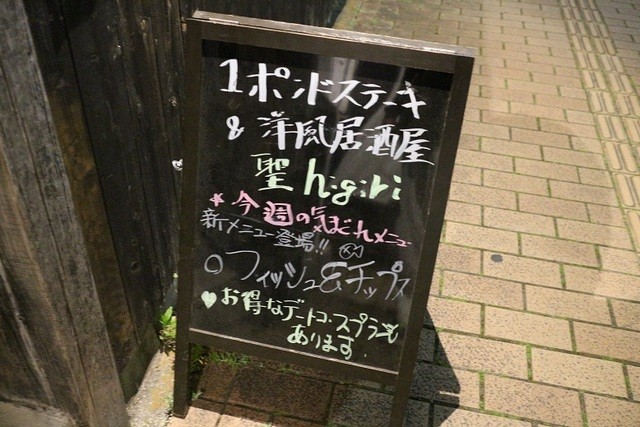 1ポンドステーキ
& 洋風居酒屋
聖 higiri
★今週の気まぐれメニュー
新メニュー登場!!
○フィッシュ&チップス
♥お得なデートコースプランも
あります